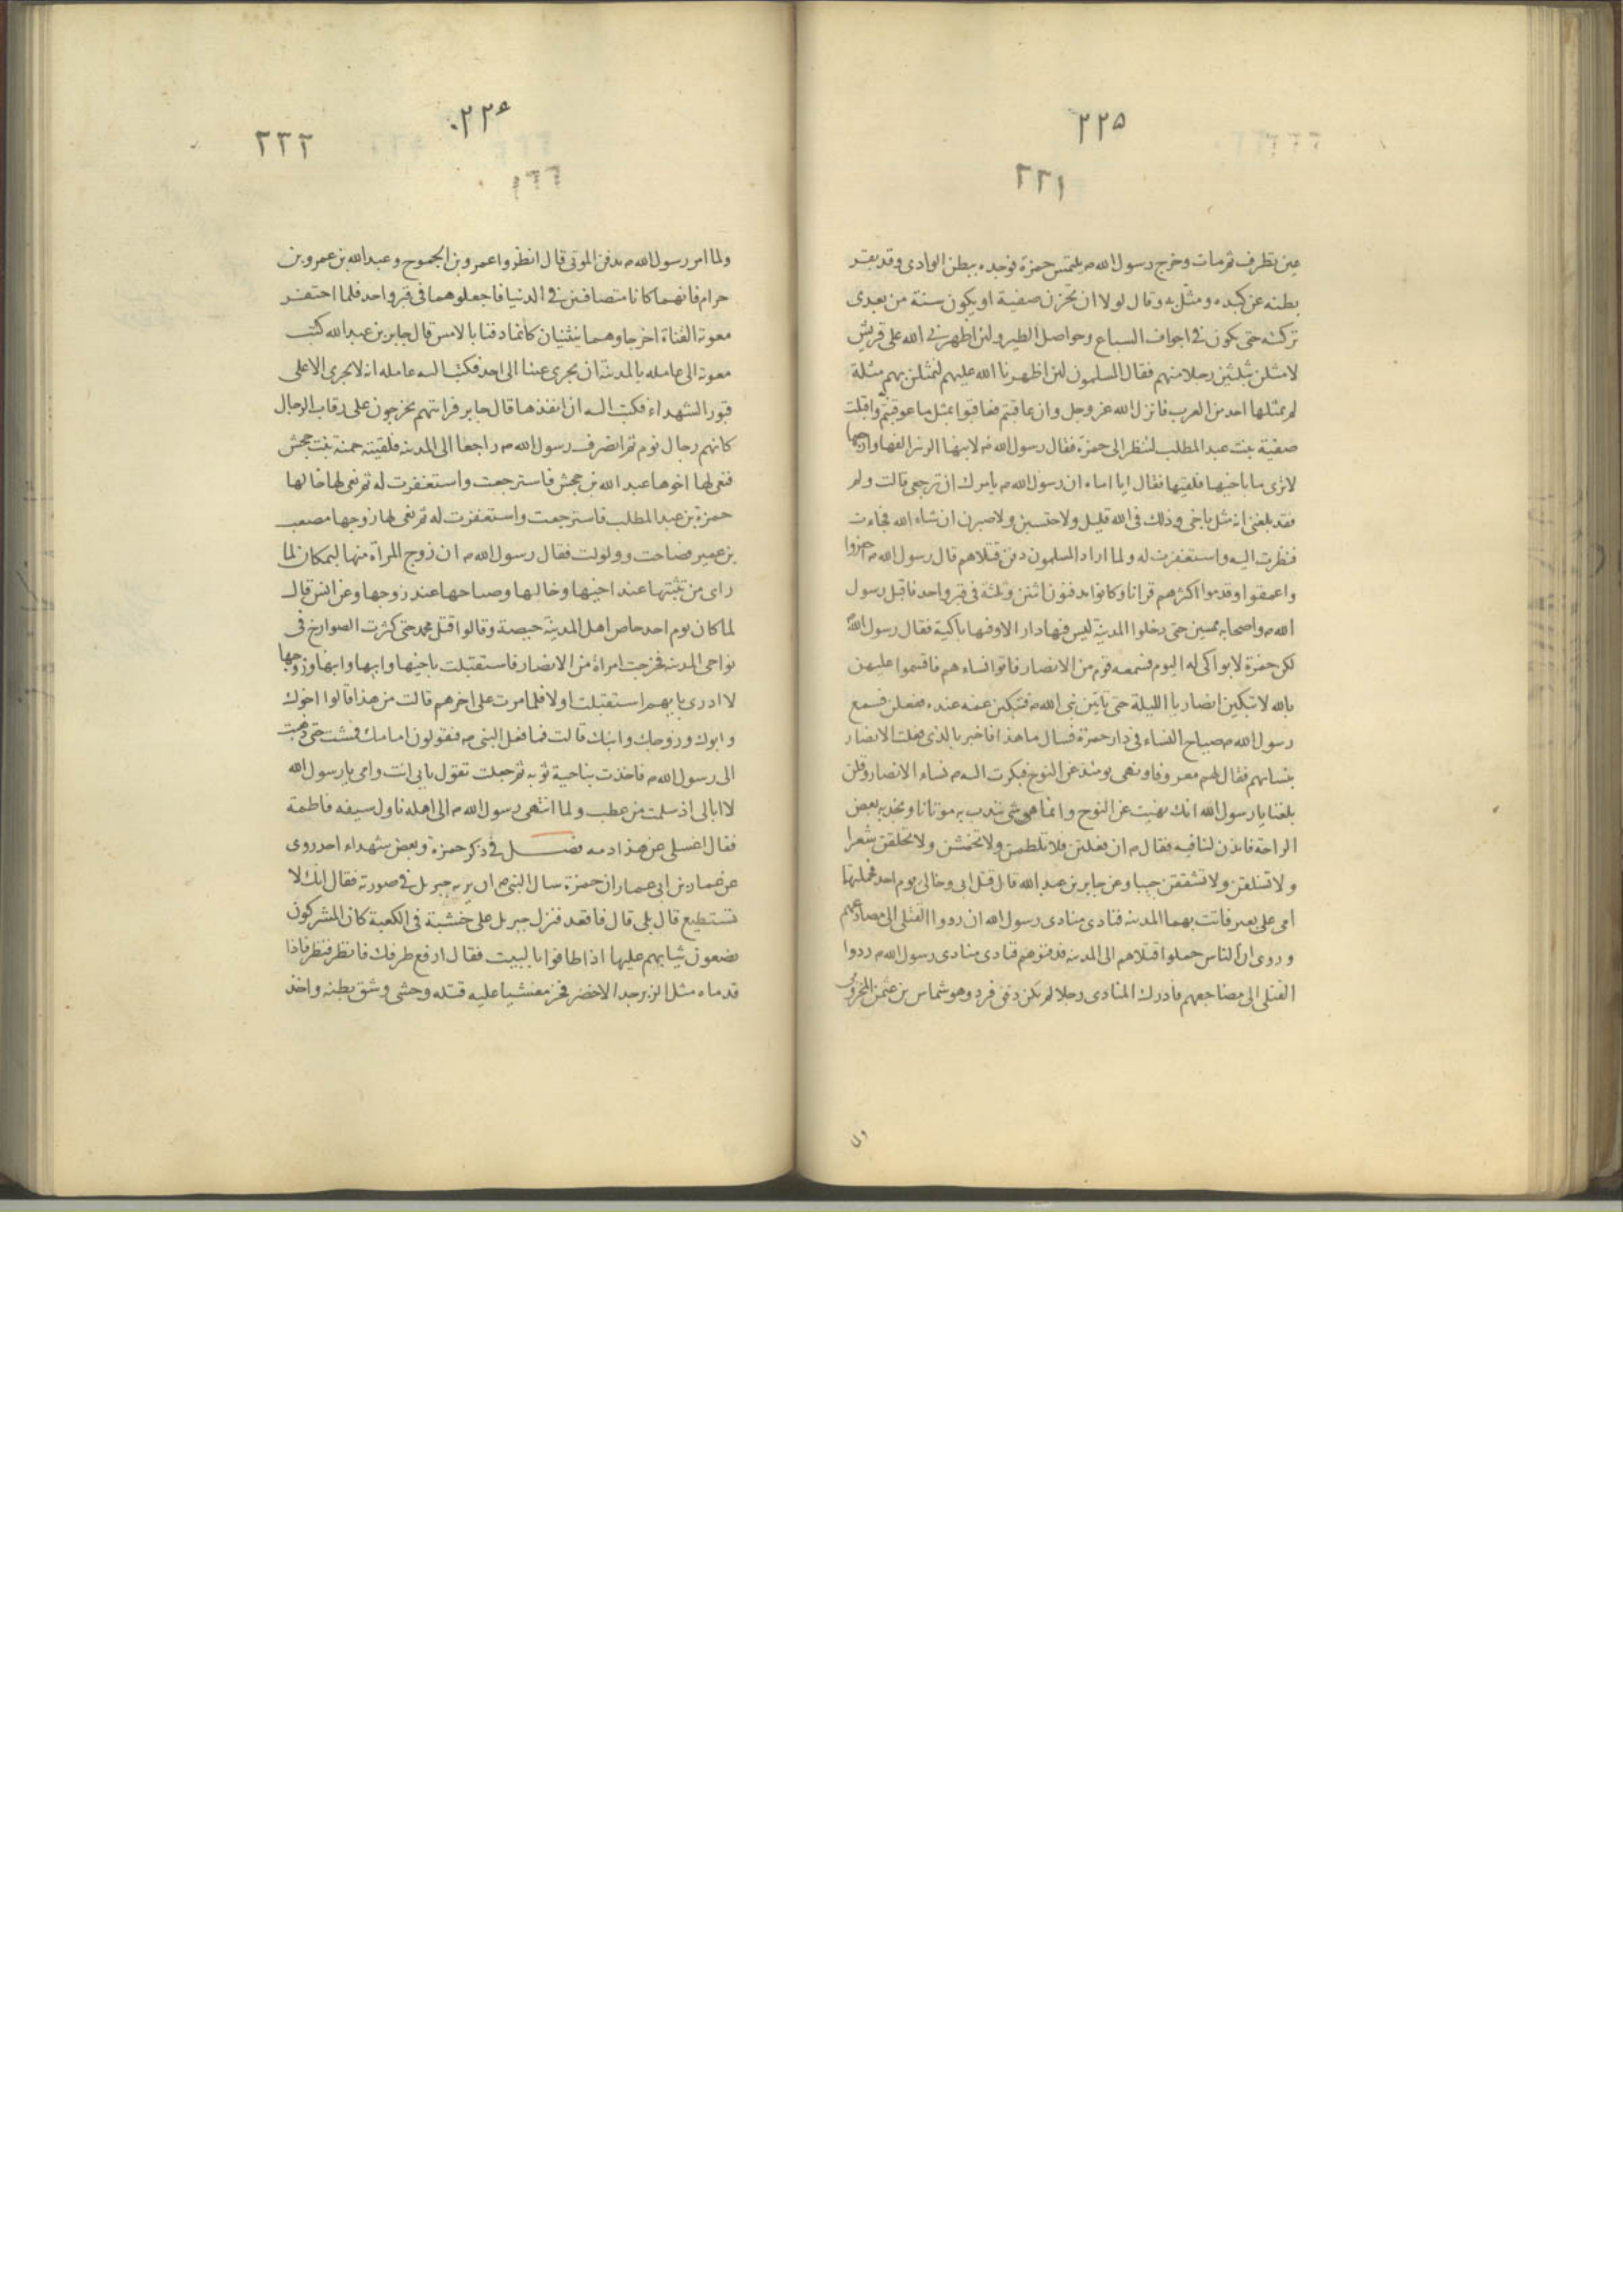 ٢٢٥
٢٢١
عين تطرف ثم مات وخرج رسول الله م يلتمس حمزة فوجده ببطن الوادى وقد بقر
بطنه عن كبده ومثل به وقال لولا ان تحزن صفية او يكون سنة من بعدى
تركته حتى يكون فى اجواف السباع وحواصل الطير ولئن اظهرنى الله على قريش
لامثلن بثلثين رجلا منهم فقال المسلمون لئن اظهرنا الله عليهم لنمثلن بهم مثلة
لم يمثلها احد من العرب فانزل الله عز وجل وان عاقبتم فعاقبوا بمثل ما عوقبتم واقبلت
صفية بنت عبد المطلب لتنظر الى حمزة فقال رسول الله م لابنها الزبير القها وارجعها
لا ترى ما باخيها فلقيها فقال ايا اماه ان رسول الله م يامرك ان ترجعى قالت ولم
فقد بلغنى انه مثل باخى وذلك فى الله قليل ولاحتسبن ولاصبرن ان شاء الله فجاءت
فنظرت اليه واستغفرت له ولما اراد المسلمون دفن قتلاهم قال رسول الله م احفروا
واعمقوا وقدموا اكثرهم قرانا وكانوا يدفنون اثنين وثلثة فى قبر واحد فاقبل رسول
الله م واصحابه ممسين حتى دخلوا المدينة ليس فيها دار الا وفيها باكية فقال رسول الله
لكن حمزة لا بواكى له اليوم فسمعه قوم من الانصار فاتوا نساءهم فاقسموا عليهن
بالله لا تبكين انصاريا الليلة حتى تاتين نبى الله م فتبكين عمه عنده ففعلن فسمع
رسول الله م صياح النساء فى دار حمزة فسال ما هذا فاخبر بالذى فعلت الانصار
بنسائهم فقال لهم معروفا ونهى يومئذ عن النوح فبكرت اليه م نساء الانصار وقلن
بلغنا يا رسول الله انك نهيت عن النوح وانما هو شى نندب به موتانا ونجد به بعض
الراحة فائذن لنا فيه فقال م ان فعلتن فلا تلطمن ولا تخمشن ولا تحلقن شعرا
ولا تسلقن ولا تشققن جيبا وعن جابر بن عبد الله قال قتل ابى وخالى يوم احد فحملتهما
امى على بعير فاتت بهما المدينة فنادى منادى رسول الله ان ردوا القتلى الى مصارعهم
وروى ان الناس حملوا قتلاهم الى المدينة فدفنوهم فنادى منادى رسول الله م ردوا
القتلى الى مضاجعهم فادرك المنادى رجلا لم يكن دفن فرد وهو شماس بن عثمن المخزومى
٢٢٤
٢٢٢
ولما امر رسول الله م بدفن الموتى قال انظروا عمرو بن الجموح وعبد الله بن عمرو بن
حرام فانهما كانا متصافيين فى الدنيا فاجعلوهما فى قبر واحد فلما احتفر
معوية القناة اخرجا وهما ينثنيان كانما دفنا بالامس قال جابر بن عبد الله كتب
معوية الى عامله بالمدينة ان يجرى عينا الى احد فكتب اليه عامله انه لا يجرى الا على
قبور الشهداء فكتب اليه ان انفذها قال جابر فرايتهم يخرجون على رقاب الرجال
كانهم رجال نوم ثم انصرف رسول الله م راجعا الى المدينة فلقيته حمنة بنت جحش
فنعى لها اخوها عبد الله بن جحش فاسترجعت واستغفرت له ثم نعى لها خالها
حمزة بن عبد المطلب فاسترجعت واستغفرت له ثم نعى لها زوجها مصعب
بن عمير فصاحت وولولت فقال رسول الله م ان زوج المراة منها لبمكان لما
راى من تثبتها عند اخيها وخالها وصياحها عند زوجها وعن انس قال
لما كان يوم احد حاص اهل المدينة حيصة وقالوا قتل محمد حتى كثرت الصوارخ فى
نواحى المدينة فخرجت امراة من الانصار فاستقبلت باخيها وابيها وابنها وزوجها
لا ادرى بايهم استقبلت اولا فلما مرت على اخرهم قالت من هذا قالوا اخوك
وابوك وزوجك وابنك قالت فما فعل النبى م فيقولون امامك فمشت حتى ذهبت
الى رسول الله م فاخذت بناحية ثوبه ثم جعلت تقول بابى انت وامى يا رسول الله
لا ابالى اذ سلمت من عطب ولما انتهى رسول الله م الى اهله ناول سيفه فاطمة
فقال اغسلى عن هذا دمه فصل فى ذكر حمزة وبعض شهداء احد روى
عن عمار بن ابى عمار ان حمزة سال النبى م ان يريه جبريل فى صورته فقال انك لا
تستطيع قال بلى قال فاقعد فنزل جبريل على خشبة فى الكعبة كان المشركون
يضعون ثيابهم عليها اذا طافوا بالبيت فقال ارفع طرفك فانظر فنظر فاذا
قدماه مثل الزبرجد الاخضر فخر مغشيا عليه قتله وحشى وشق بطنه واخذ